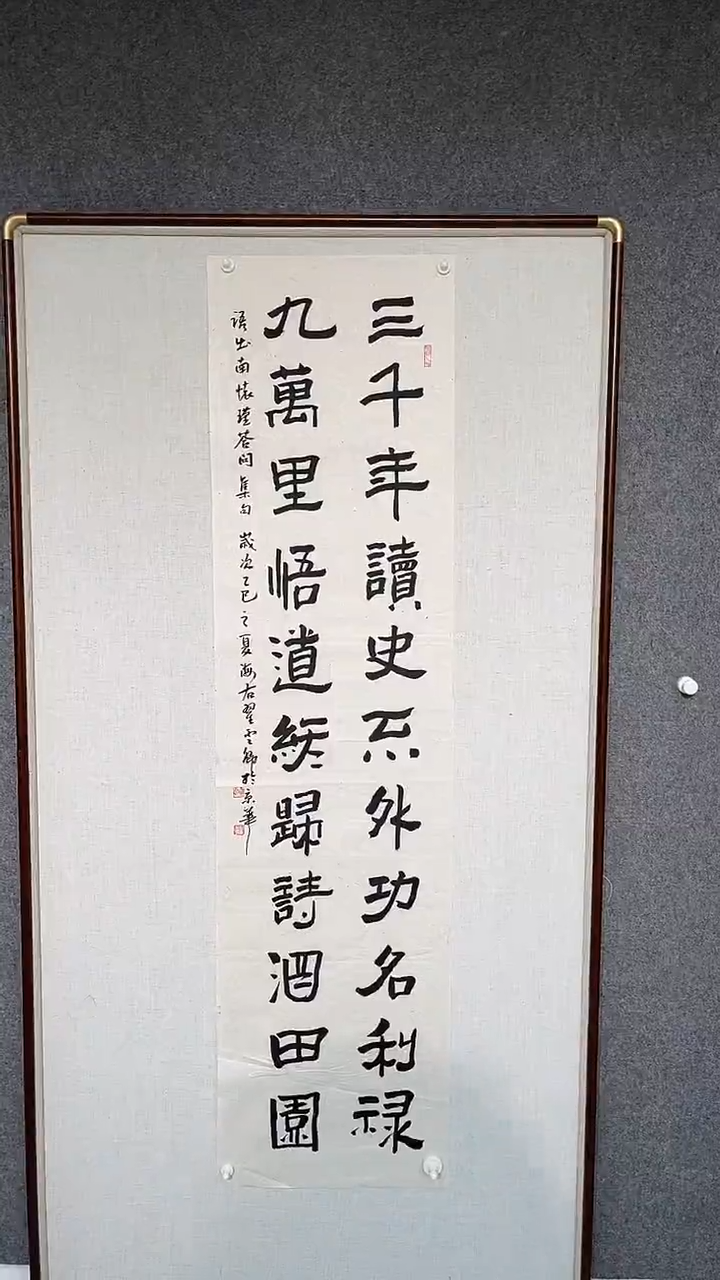 三千年讀史不外功名利禄
九萬里悟道終歸詩酒田園
语出南懷瑾答问集句 歲次乙巳之夏海右翟云於京華